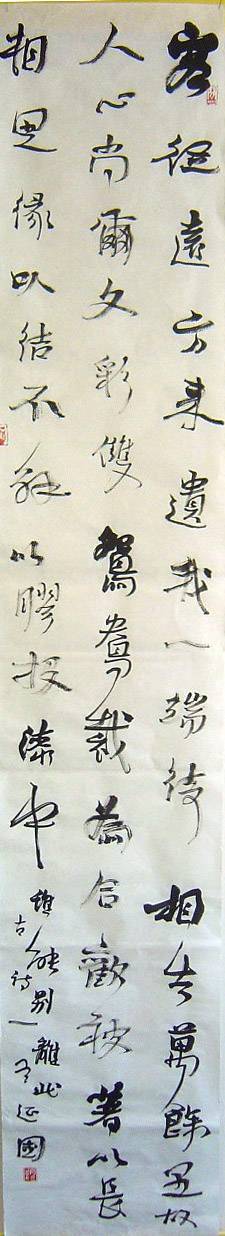 客從遠方來遺我一端綺相去萬餘里故
人心尚爾文彩雙鴛鴦裁為合歡被著以長
相思緣以結不解以膠投漆中
誰能別離此
古詩一
延國